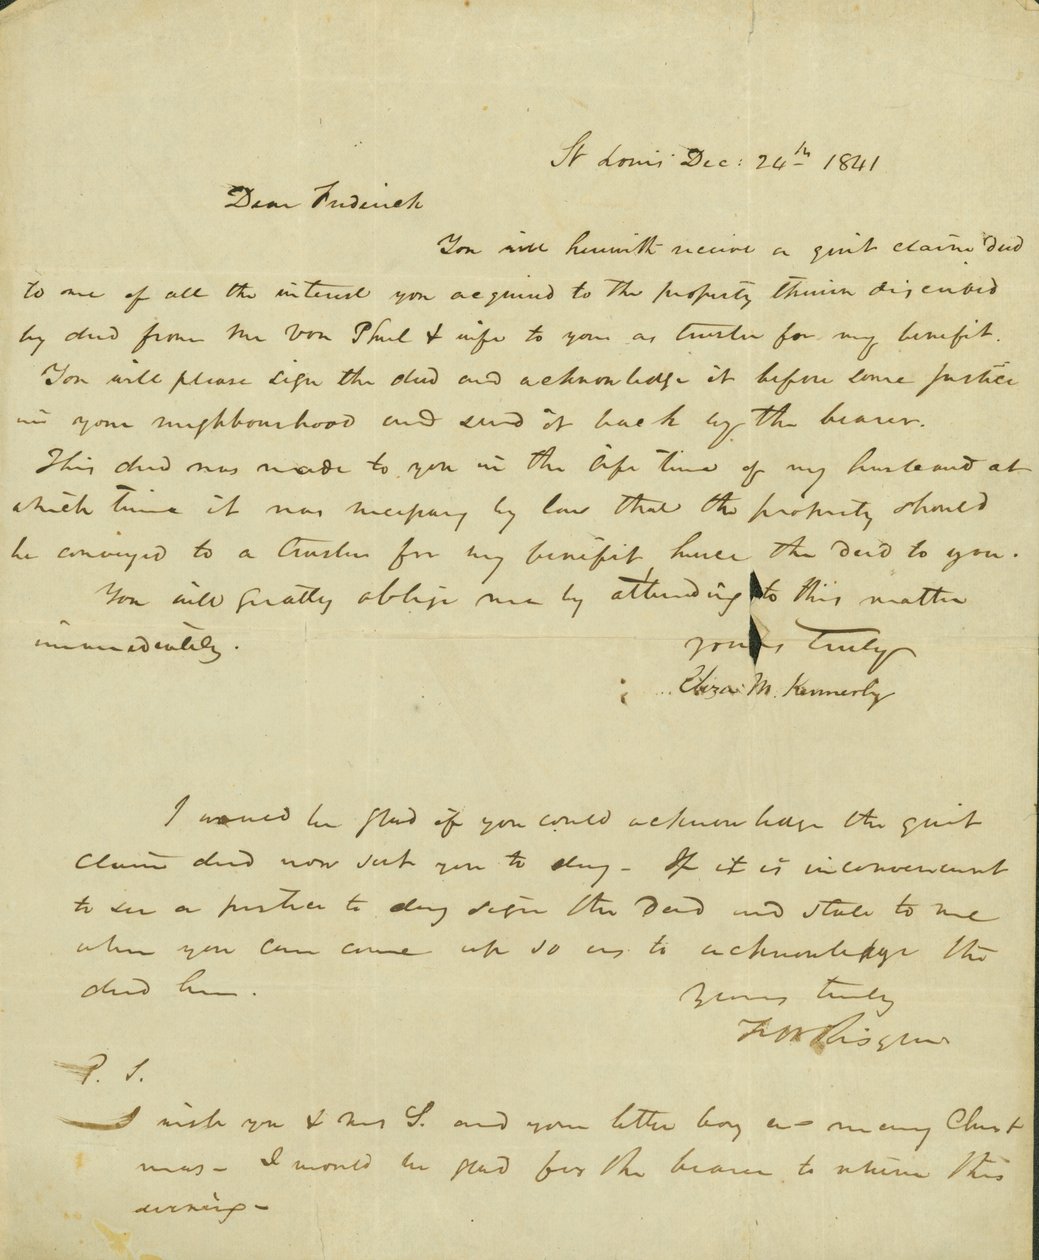 St Louis Dec: 24th 1841
Dear Frederick
You will herewith receive a quit claim deed
to me of all the interest you acquired to the property therein discribed
by deed from Mr Von Phul & wife to you as trustee for my benefit.
You will please sign the deed and acknowledge it before some Justice
in your neighbourhood and send it back by the bearer.
This deed was made to you in the life time of my husband at
which time it was necessary by law that the property should
be conveyed to a trustee for my benefit hence the deed to you.
You will greatly oblige me by attending to this matter
immediately.
yours truly
Eliza M. Kennerly
I would be glad if you could acknowledge the quit
claim deed now sent you to day - If it is inconvenient
to see a justice to day sign the Deed and state to me
when you can come up so as to acknowledge the
deed here.
Yours truly
F W Risque
P. S.
I wish you & Mrs S. and your little boy a - merry Christ
mas - I would be glad for the bearer to return this
evening -